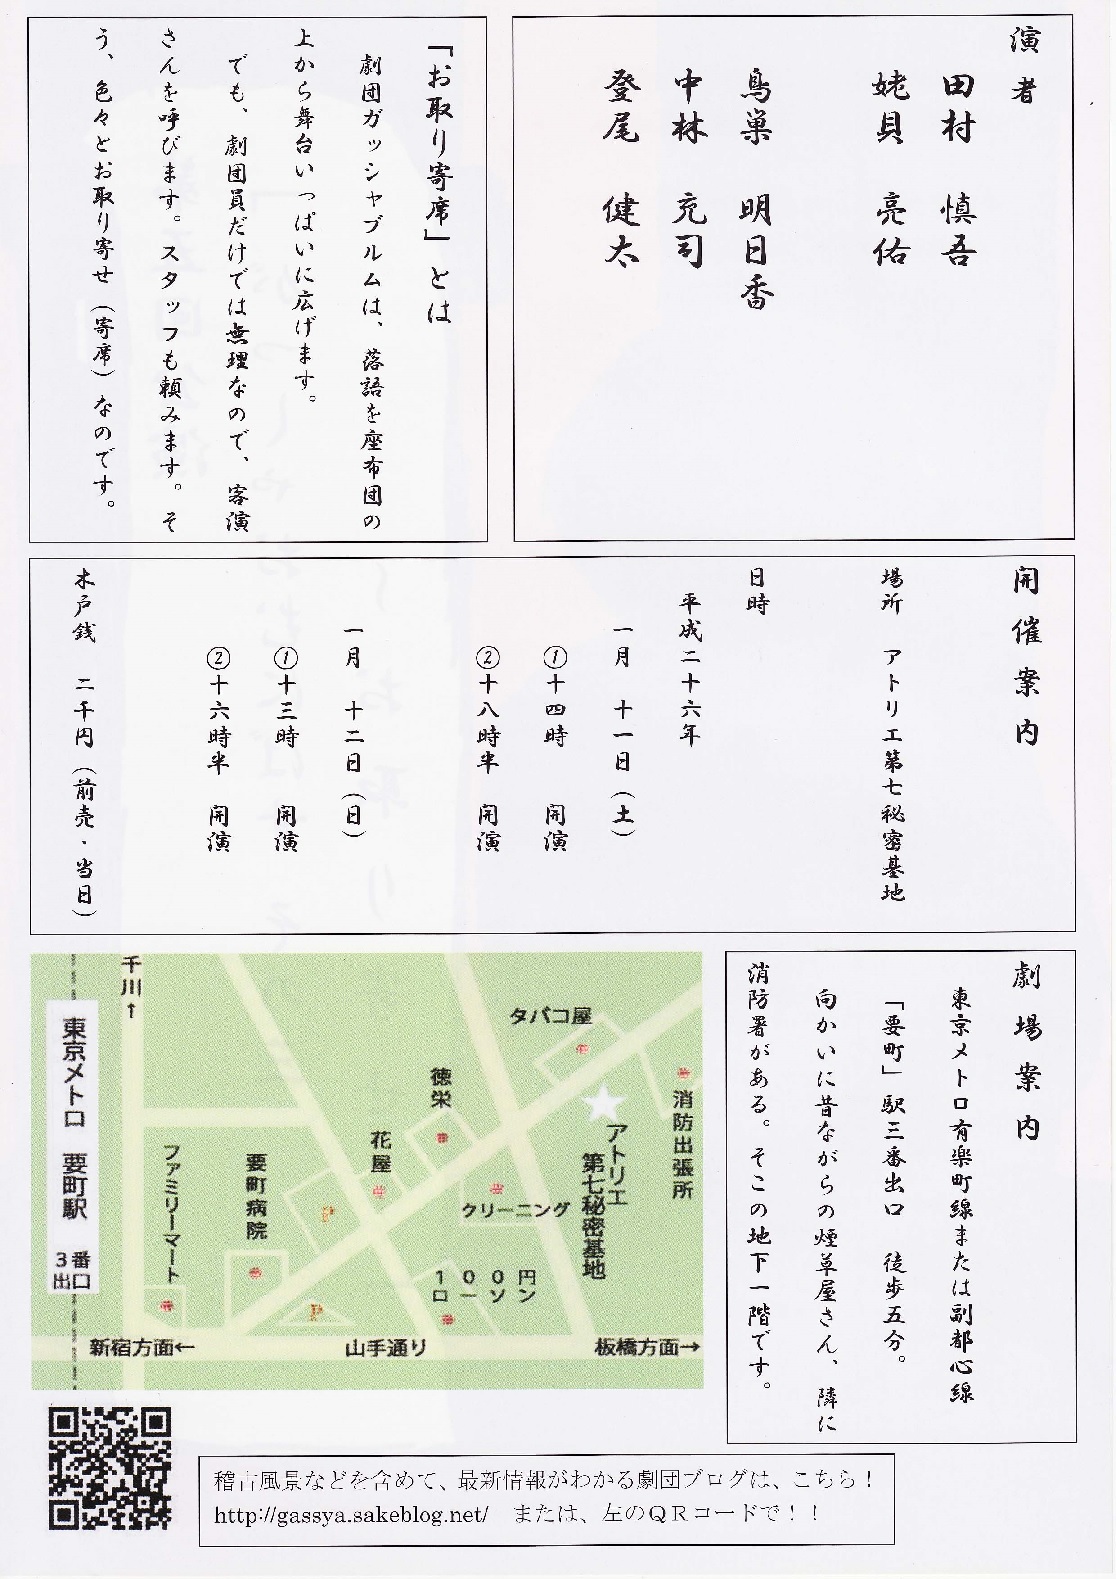 演者
田村 慎吾
姥貝 亮佑
鳥巣 明日香
中林 充司
登尾 健太
「お取り寄席」とは
劇団ガッシャブルムは、落語を座布団の
上から舞台いっぱいに広げます。
でも、劇団員だけでは無理なので、客演
さんを呼びます。スタッフも頼みます。そ
う、色々とお取り寄せ(寄席)なのです。
開催案内
場所 アトリエ第七秘密基地
日時
平成二十六年
一月 十一日(土)
①十四時 開演
②十八時半 開演
一月 十二日(日)
①十三時 開演
②十六時半 開演
木戸銭 二千円(前売・当日)
劇場案内
東京メトロ有楽町線または副都心線
「要町」駅三番出口 徒歩五分。
向かいに昔ながらの煙草屋さん、隣に
消防署がある。そこの地下一階です。
千川↑
東京メトロ 要町駅
3番
出口
ファミリーマート
要町病院
花屋
徳栄
タバコ屋
消防出張所
アトリエ
第七秘密基地
クリーニング
100円
ローソン
P
P
新宿方面←
山手通り
板橋方面→
稽古風景などを含めて、最新情報がわかる劇団ブログは、こちら!
http://gassya.sakeblog.net/ または、左のQRコードで!!